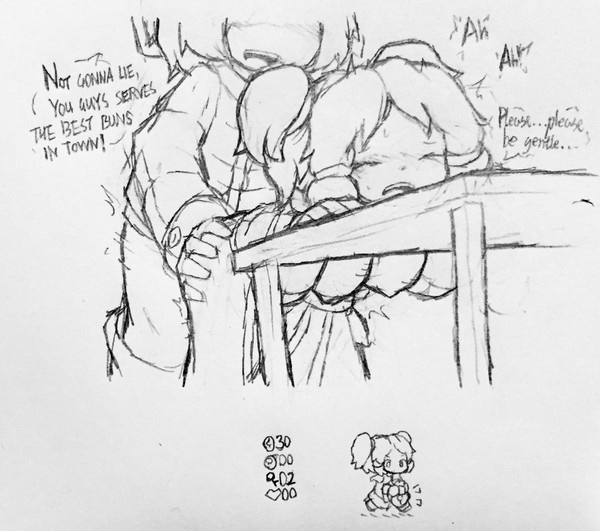 NOT GONNA LIE,
YOU GUYS SERVES
THE BEST BUNS
IN TOWN!
Ah
Ah!
Please...please
be gentle...
30
00
02
00